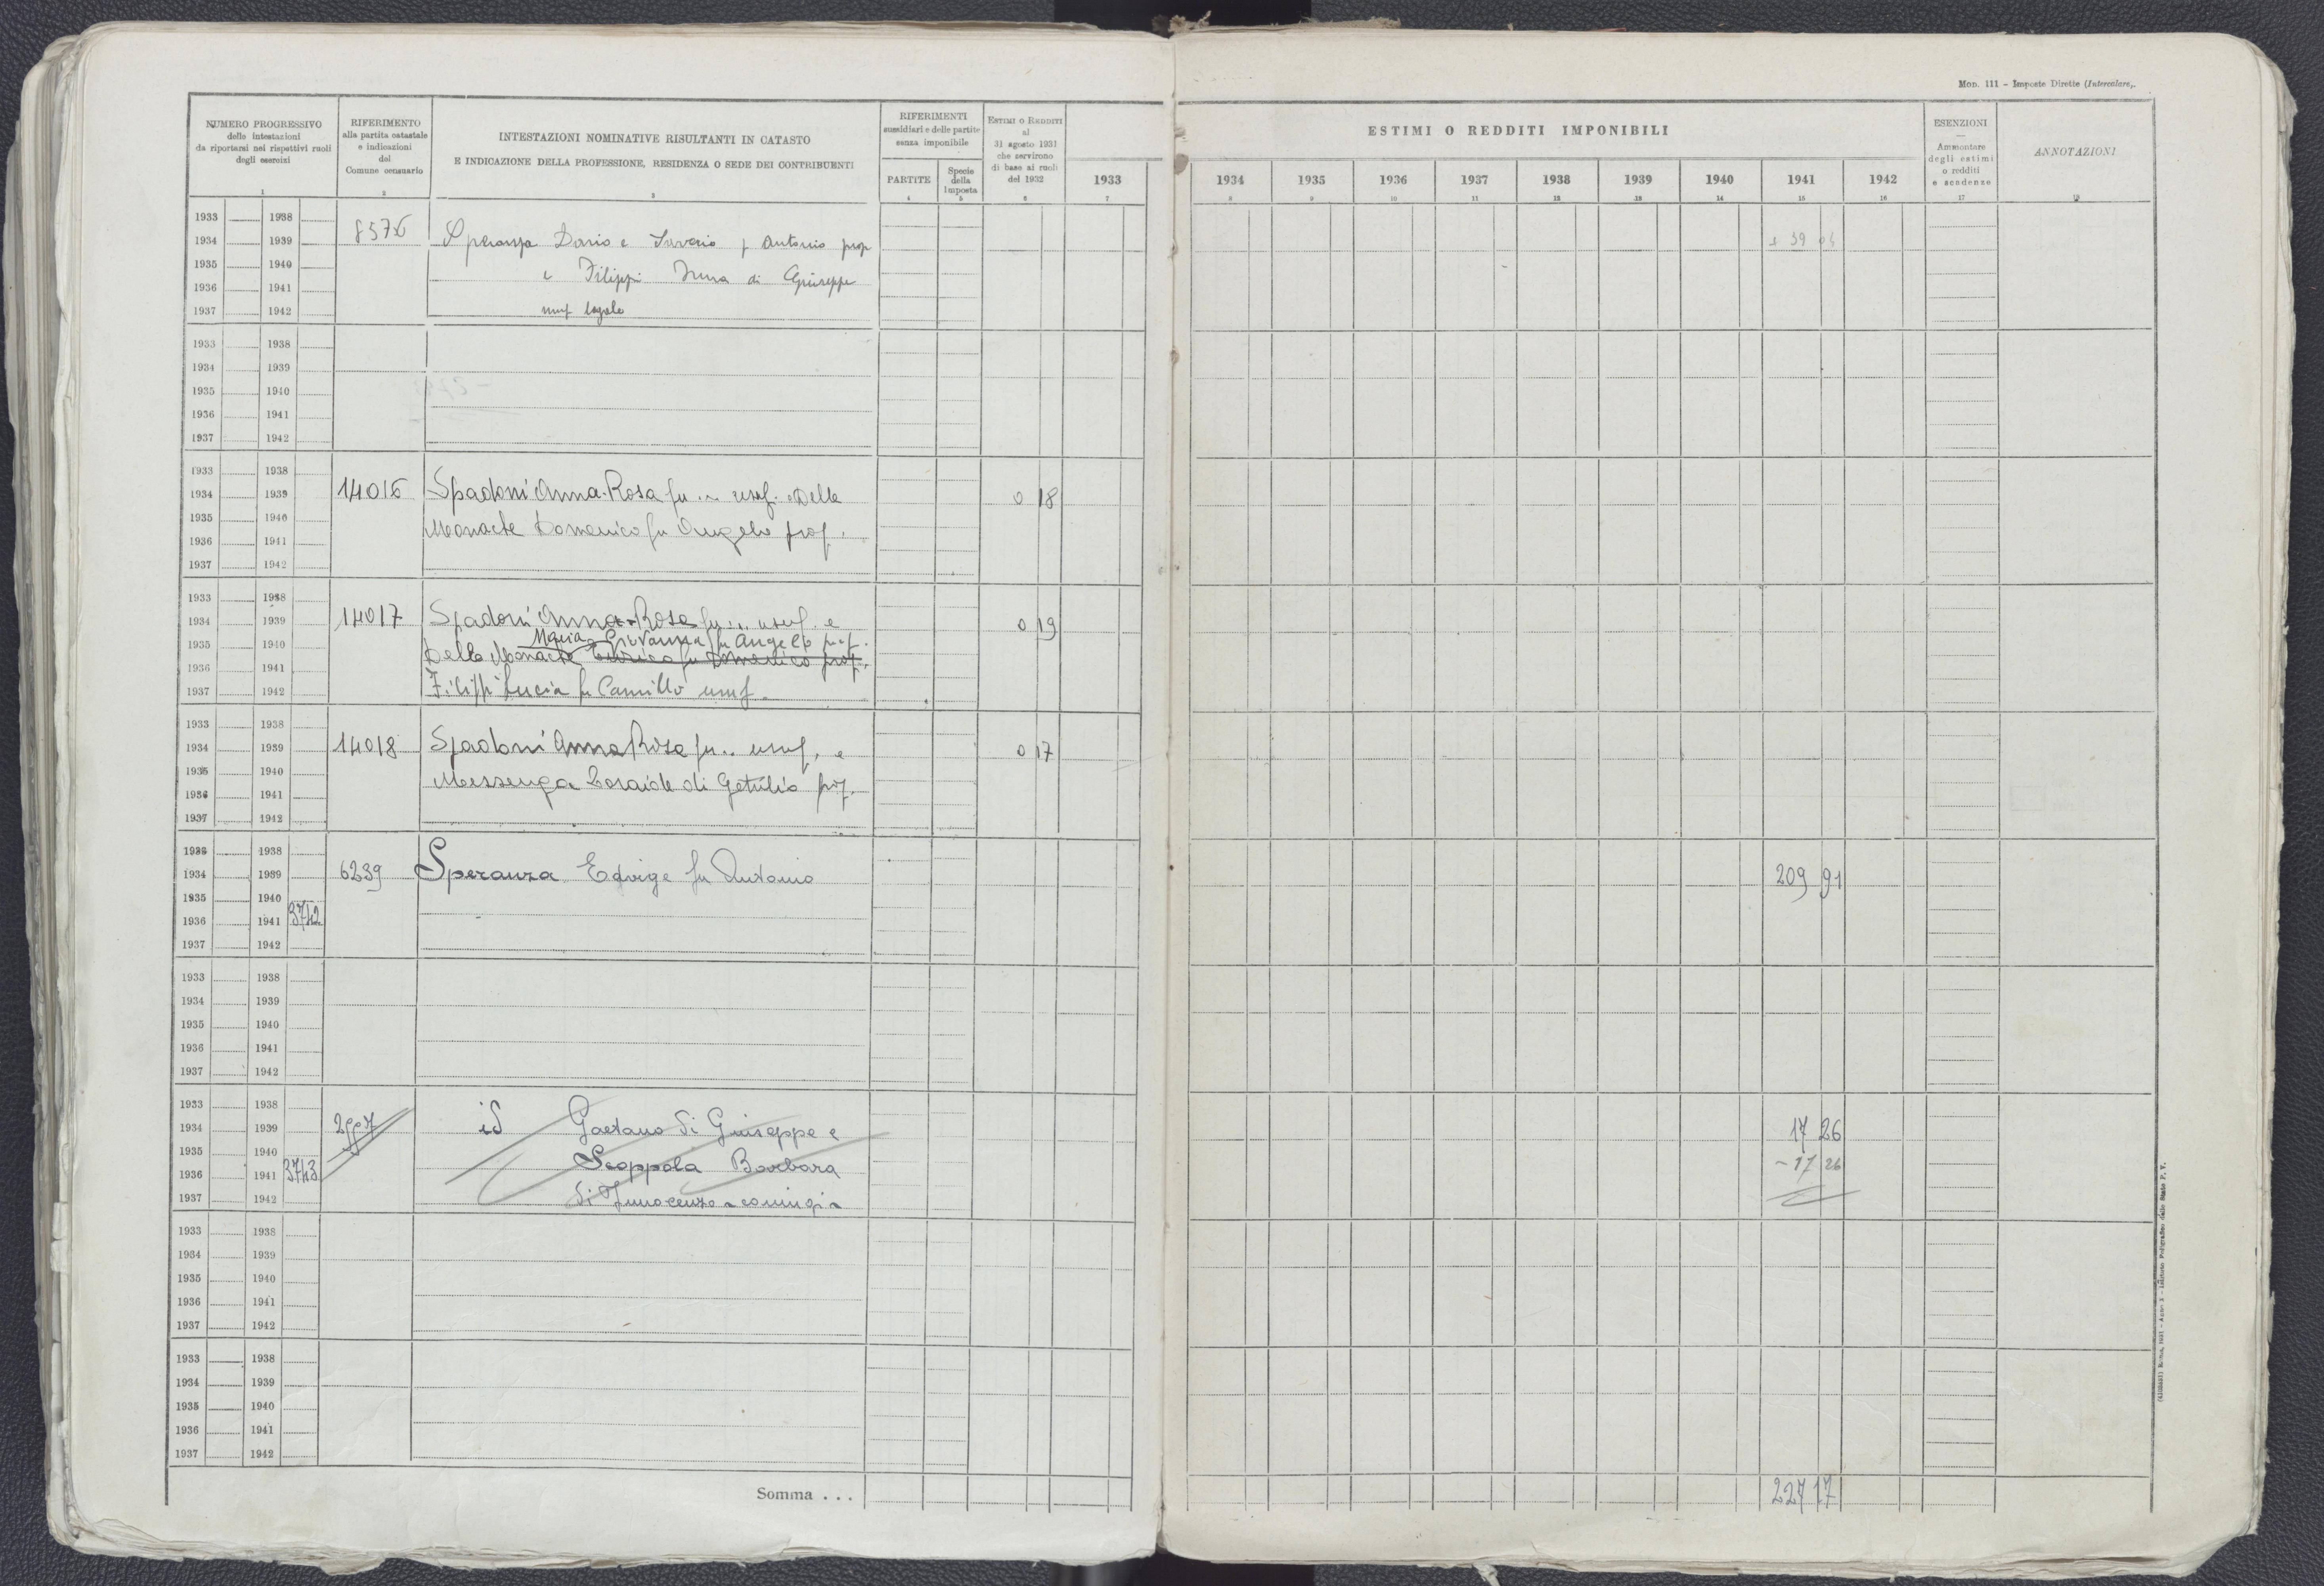 Mod. 111 - Imposte Dirette (Intercalare).
NUMERO PROGRESSIVO
delle intestazioni
da riportarsi nei rispettivi ruoli
degli esercizi
1
RIFERIMENTO
alla partita catastale
e indicazioni
del
Comune censuario
2
INTESTAZIONI NOMINATIVE RISULTANTI IN CATASTO
E INDICAZIONE DELLA PROFESSIONE, RESIDENZA O SEDE DEI CONTRIBUENTI
3
RIFERIMENTI
sussidiari e delle partite
senza imponibile
PARTITE
4
Specie
della
Imposta
5
ESTIMI O REDDITI
al
31 agosto 1931
che servirono
di base ai ruoli
del 1932
6
ESTIMI O REDDITI IMPONIBILI
1933 1934 1935 1936 1937 1938 1939 1940 1941 1942
7 8 9 10 11 12 13 14 15 16
ESENZIONI
—
Ammontare
degli estimi
o redditi
e scadenze
17
ANNOTAZIONI
18
1933 1938
1934 1939 Dario e Saverio f Antonio prop 39
1935 1940
1936 1941 e Filippi di Giuseppe
1937 1942 usuf legale
1933 1938
1934 1939
1935 1940
1936 1941
1937 1942
1933 1938
1934 1939 14016 Spadoni Anna-Rosa fu .. usuf. e Delle 0 18
1935 1940
1936 1941 Monache Domenico fu Angelo prop.
1937 1942
1933 1938
1934 1939 14017 Spadoni Anna-Rosa fu .. usuf. e 0 19
Maria Giovanna fu Angelo prop.
1935 1940 Delle Monache Enrico fu Domenico prop.
1936 1941
1937 1942 Filippi Lucia fu Camillo usuf.
1933 1938
1934 1939 14018 Spadoni Anna Rosa fu .. usuf. e 0 17
1935 1940
1936 1941 Messenga Zoraide di Getulio prop.
1937 1942
1933 1938
1934 1939 6239 Speranza Edvige fu Antonio 209 91
1935 1940
1936 1941 3742
1937 1942
1933 1938
1934 1939
1935 1940
1936 1941
1937 1942
1933 1938
1934 1939 id Gaetano di Giuseppe e 17 26
1935 1940
1936 1941 3743 Scoppola Barbara - 17 26
1937 1942 di Innocenzo - coniugi -
1933 1938
1934 1939
1935 1940
1936 1941
1937 1942
1933 1938
1934 1939
1935 1940
1936 1941
1937 1942
Somma . . . 227 17